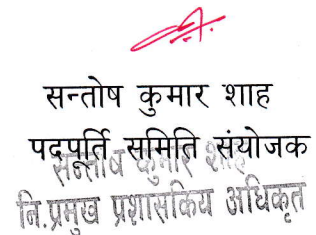 सन्तोष कुमार शाह
पदपूर्ति समिति संयोजक
सन्तोष कुमार शाह
नि.प्रमुख प्रशासकिय अधिकृत